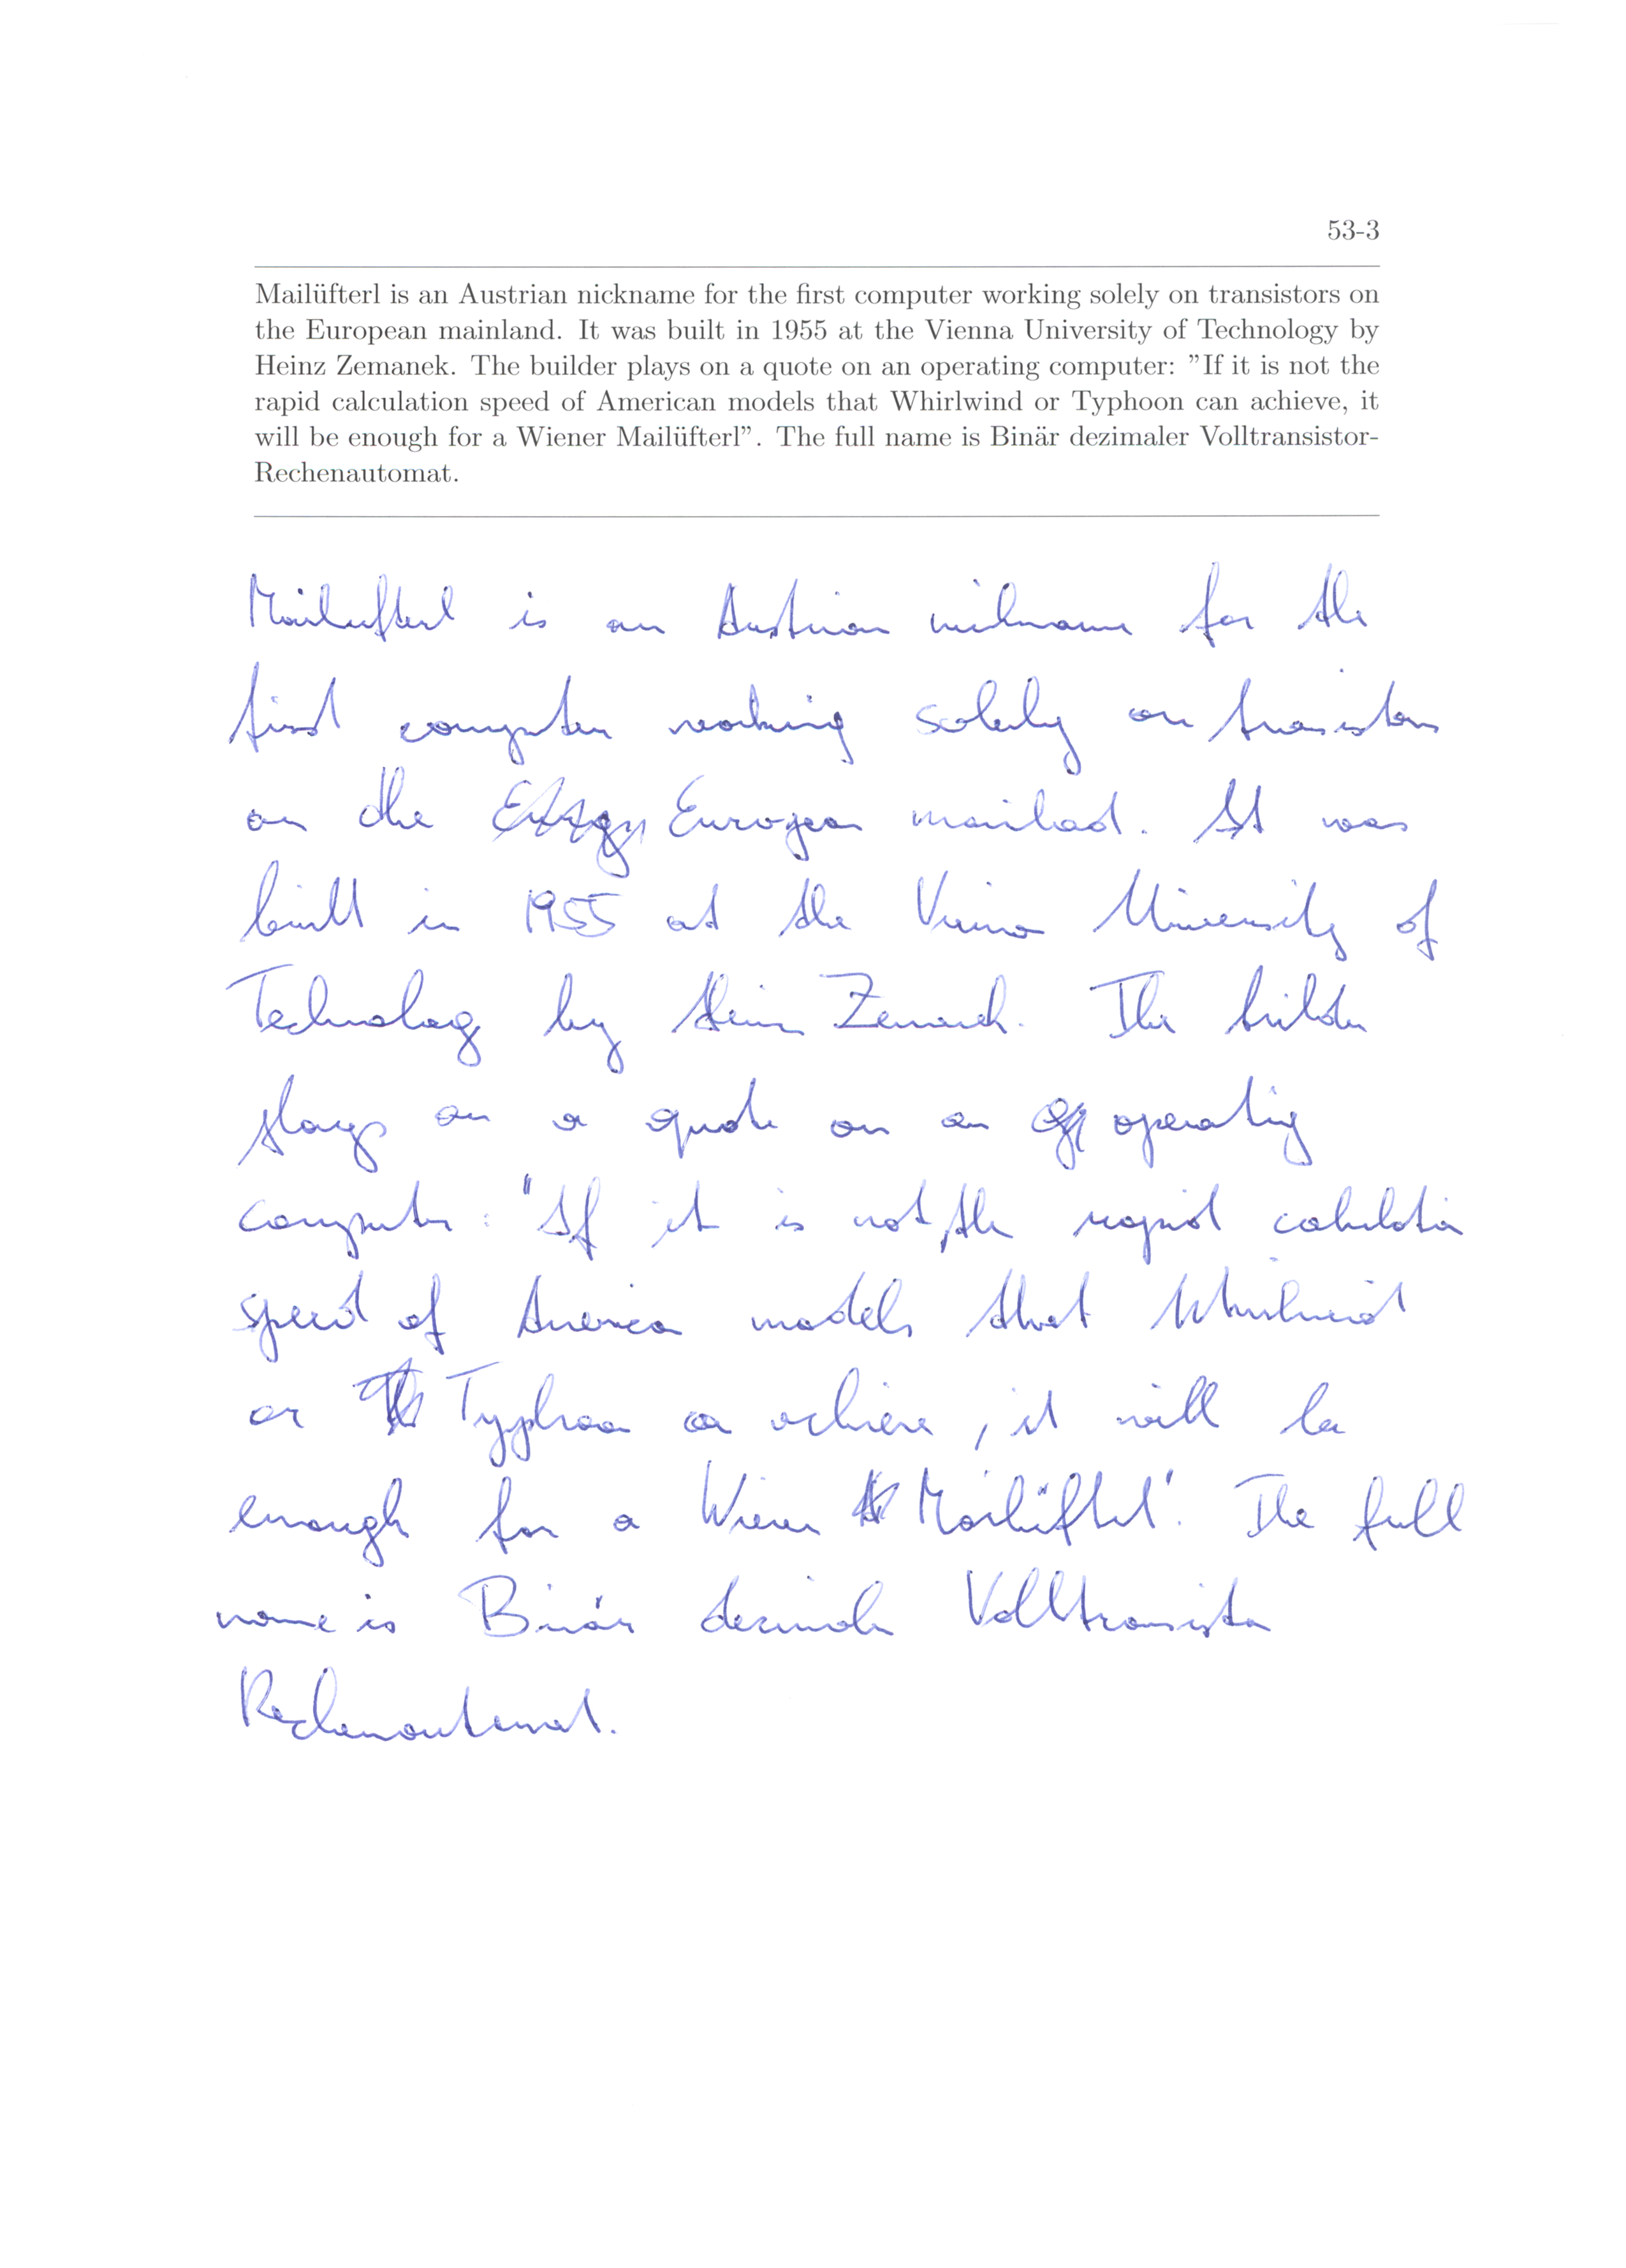 53-3
Mailüfterl is an Austrian nickname for the first computer working solely on transistors on
the European mainland. It was built in 1955 at the Vienna University of Technology by
Heinz Zemanek. The builder plays on a quote on an operating computer: ”If it is not the
rapid calculation speed of American models that Whirlwind or Typhoon can achieve, it
will be enough for a Wiener Mailüfterl”. The full name is Binär dezimaler Volltransistor-
Rechenautomat.
Mailufterl is an Austrian nickname for the
first computer working solely on transistors
on the European mainland. It was
built in 1955 at the Vienna University of
Technology by Heinz Zemanek. The builder
plays on a quote on an operating
computer: "If it is not the rapid calculation
speed of American models that Whirlwind
or Typhoon can achieve, it will be
enough for a Wiener Mailüfterl". The full
name is Binär dezimaler Volltransistor
Rechenautomat.